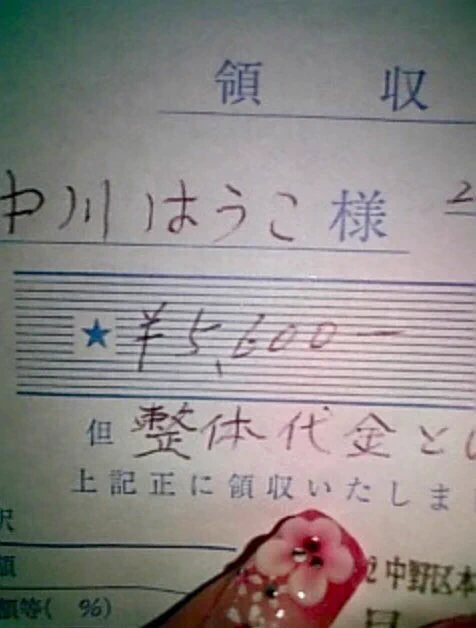 領収
中川はうこ様 2
★ ¥5,600-
但 整体代金とし
上記正に領収いたしま
訳
額
額等( %)
中野区本